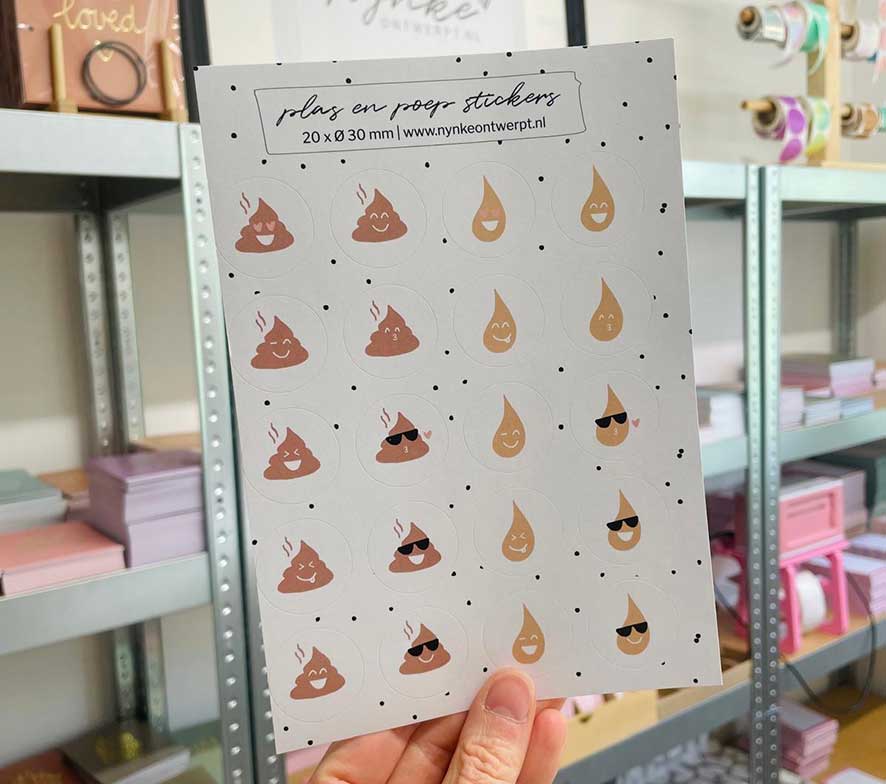 loved
nynke
ONTWERPT.NL
plas en poep stickers
20 x Ø 30 mm | www.nynkeontwerpt.nl